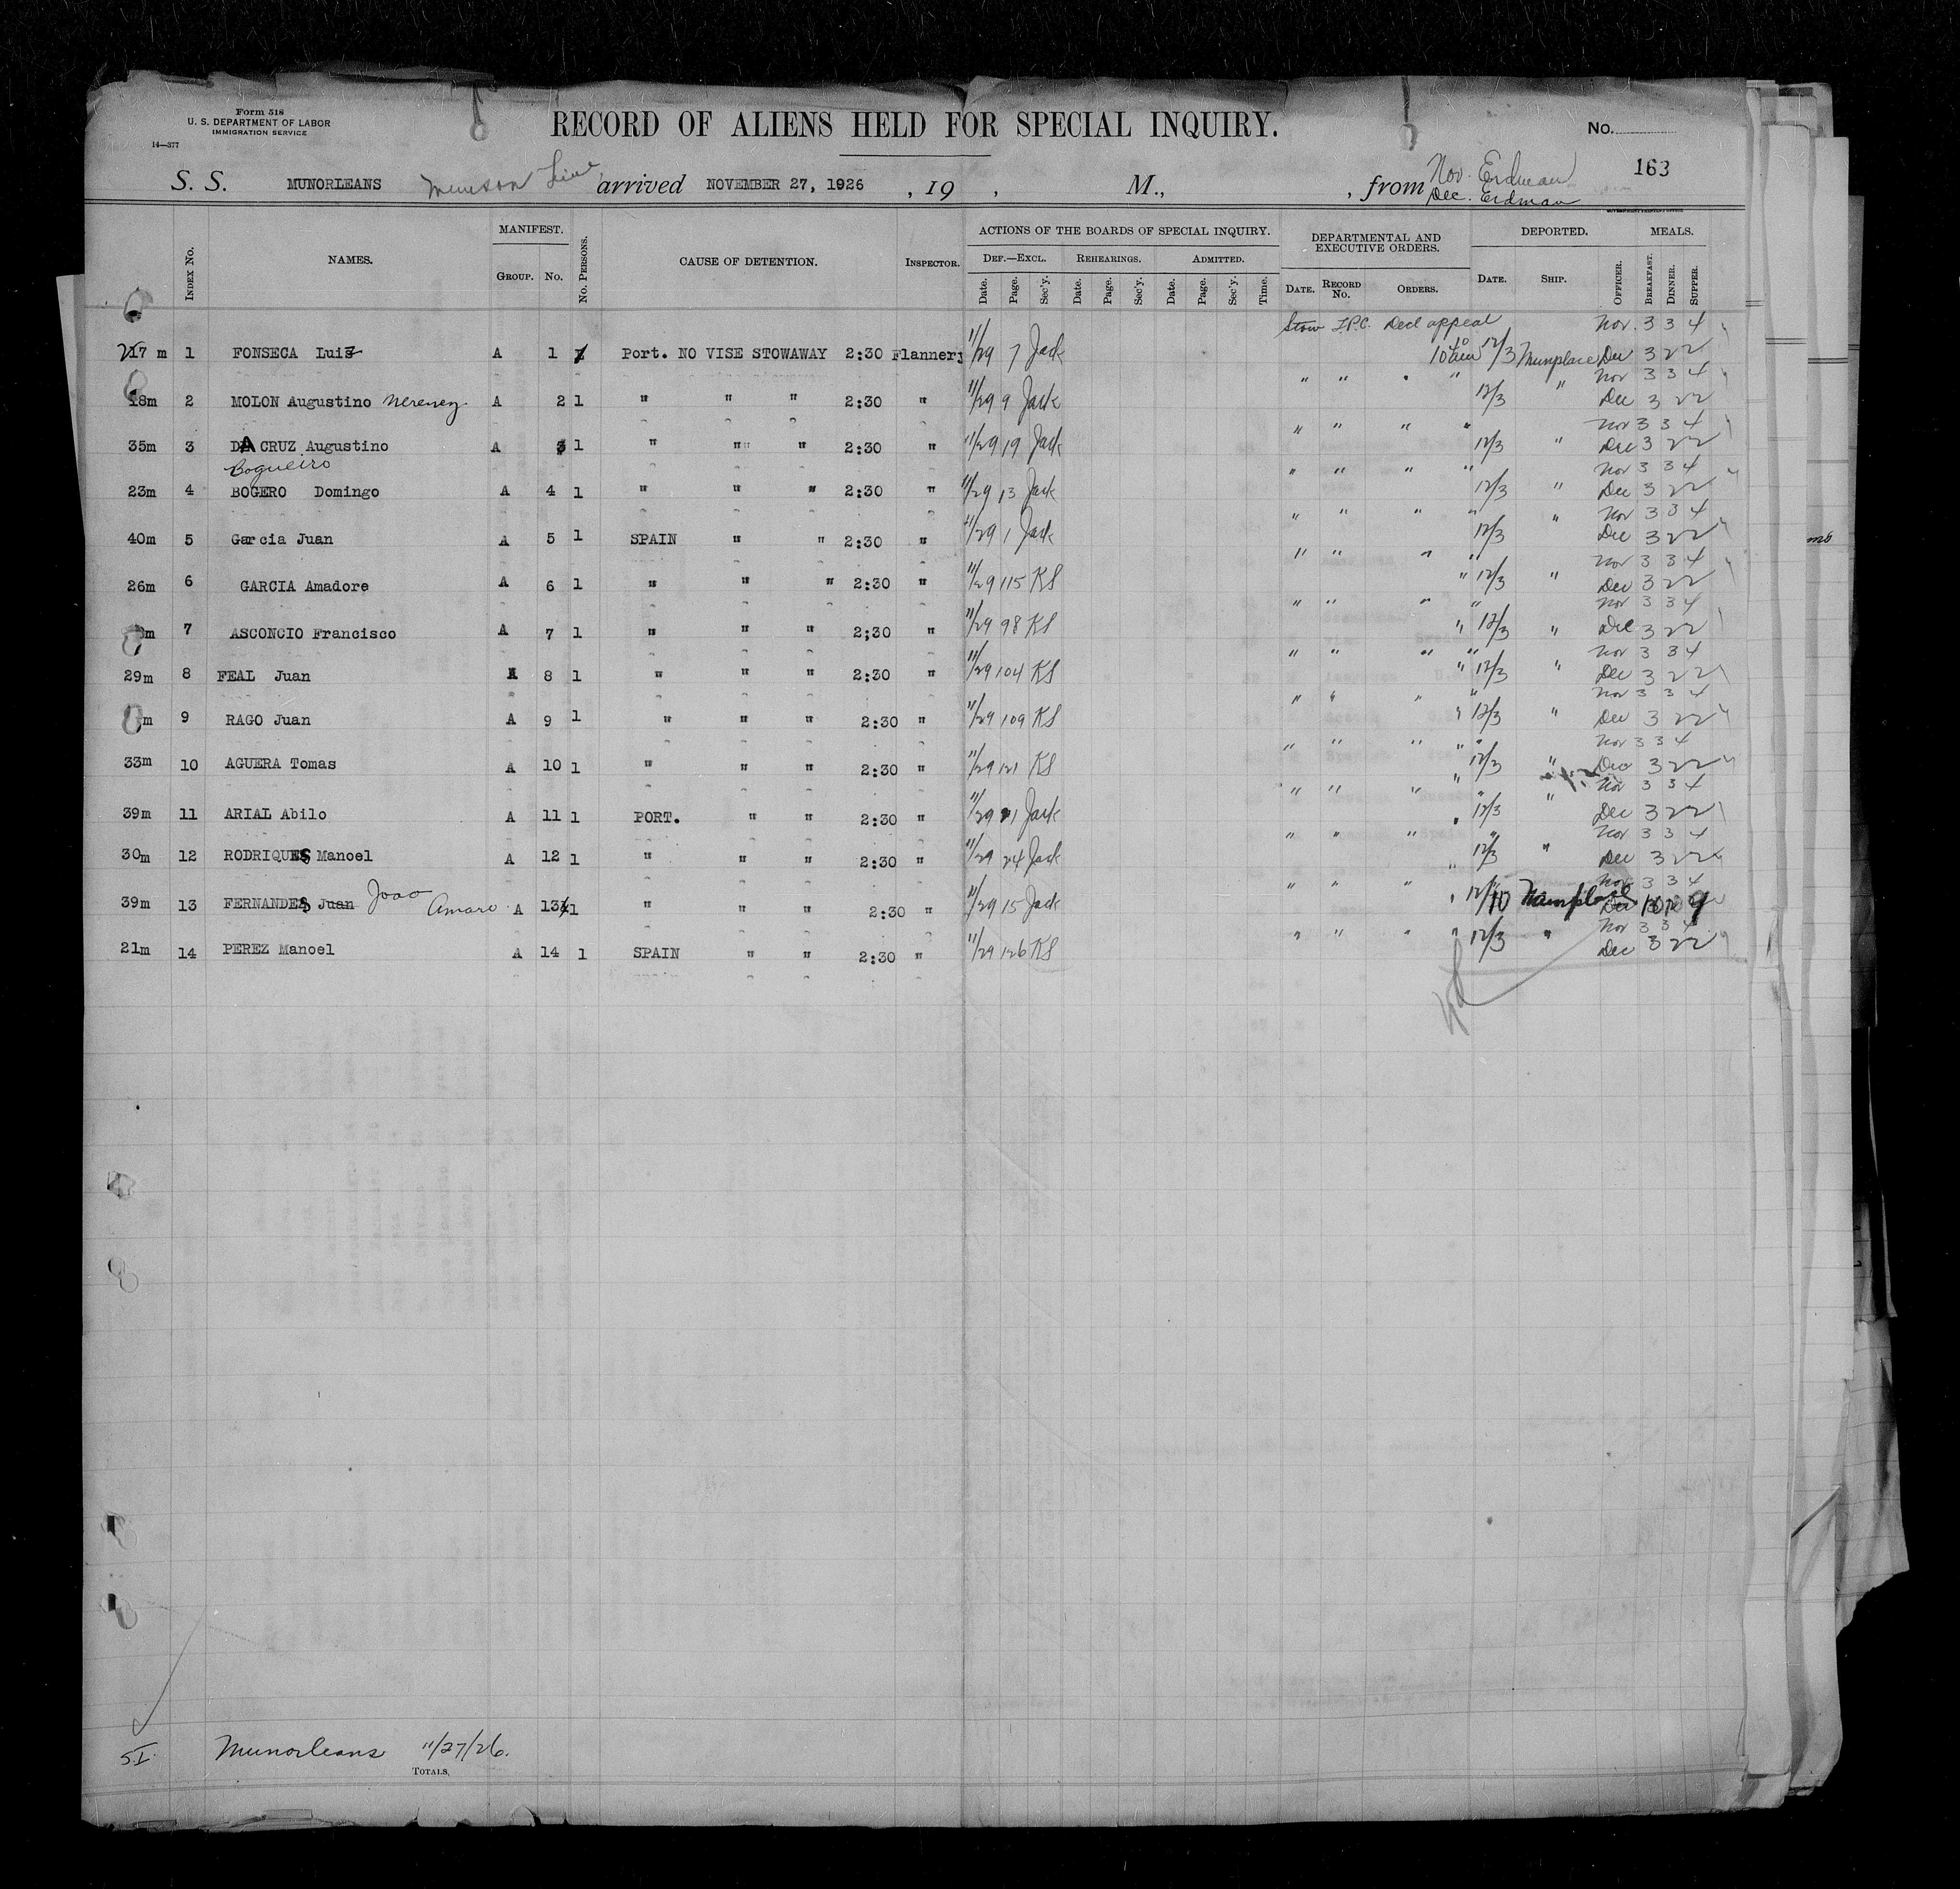 Form 518
U. S. DEPARTMENT OF LABOR
IMMIGRATION SERVICE
14—377
RECORD OF ALIENS HELD FOR SPECIAL INQUIRY.
No.
163
S. S. MUNORLEANS Munson Line arrived NOVEMBER 27, 1926 , 19 , M., , from Nov. Erdman
Dec. Erdman
Index No. NAMES. MANIFEST. Group. No. No. Persons. CAUSE OF DETENTION. Inspector. ACTIONS OF THE BOARDS OF SPECIAL INQUIRY. DEPARTMENTAL AND EXECUTIVE ORDERS. DEPORTED. MEALS.
Def.—Excl. Rehearings. Admitted.
Date. Page. Sec'y. Date. Page. Sec'y. Date. Page. Sec'y. Time. Date. Record No. Orders. Date. Ship. Officer. Breakfast. Dinner. Supper.
Stow I.P.C. Decl appeal Nov. 3 3 4
17 m 1 FONSECA Luis A 1 1 Port. NO VISE STOWAWAY 2:30 Flannery 11/29 7 Jack 12/3 Munplace Dec 3 2 2
" " " " Nov 3 3 4
18m 2 MOLON Augustino A 2 1 " " " 2:30 " 11/29 9 Jack 12/3 " Dec 3 2 2
" " " " Nov 3 3 4
35m 3 DA CRUZ Augustino A 3 1 " " " 2:30 " 11/29 19 Jack 12/3 " Dec 3 2 2
Bogueiro " " " " Nov 3 3 4
23m 4 BOGERO Domingo A 4 1 " " " 2:30 " 11/29 13 Jack 12/3 " Dec 3 2 2
" " " " Nov 3 3 4
40m 5 Garcia Juan A 5 1 SPAIN " " 2:30 " 11/29 1 Jack 12/3 " Dec 3 2 2
" " " " Nov 3 3 4
26m 6 GARCIA Amadore A 6 1 " " " 2:30 " 11/29 115 KS " 12/3 " Dec 3 2 2
" " " " Nov 3 3 4
m 7 ASCONCIO Francisco A 7 1 " " " 2;30 " 11/29 98 KS " 12/3 " Dec 3 2 2
" " " " Nov 3 3 4
29m 8 FEAL Juan A 8 1 " " " 2:30 " 11/29 104 KS " 12/3 " Dec 3 2 2
" " " " Nov 3 3 4
m 9 RAGO Juan A 9 1 " " " 2:30 " 11/29 109 KS " 12/3 " Dec 3 2 2
" " " " Nov 3 3 4
33m 10 AGUERA Tomas A 10 1 " " " 2:30 " 11/29 121 KS 12/3 " Dec 3 2 2
" " " " Nov 3 3 4
39m 11 ARIAL Abilo A 11 1 PORT. " " 2:30 " 11/29 Jack 12/3 " Dec 3 2 2
" " " " Nov 3 3 4
30m 12 RODRIQUES Manoel A 12 1 " " " 2:30 " 11/29 24 Jack 12/3 " Dec 3 2 2
" " " Nov 3 3 4
39m 13 FERNANDES Juan Joao Amaro A 13 1 " " " 2:30 " 11/29 15 Jack 12/10 Munplace Dec 10 10 9
" " " " Nov 3 3 4
21m 14 PEREZ Manoel A 14 1 SPAIN " " 2:30 " 11/29 126 KS 12/3 " Dec 3 2 2
S.I. Munorleans 11/27/26.
Totals,